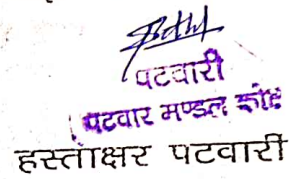 पटवारी
पटवार मण्डल
हस्ताक्षर पटवारी